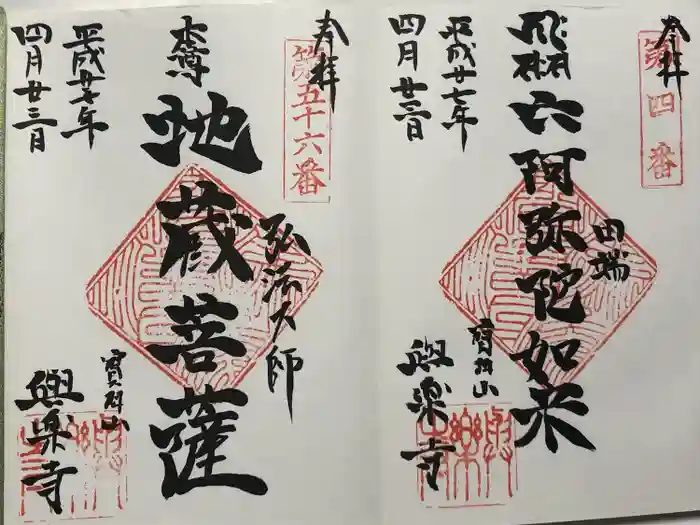 奉拝
第四番
飛鳥六阿弥陀如来
田端
寶珠山
與楽寺
平成廿七年
四月廿三日
奉拝
第五十六番
弘法大師
本尊
地蔵菩薩
寶珠山
與楽寺
平成廿七年
四月廿三日